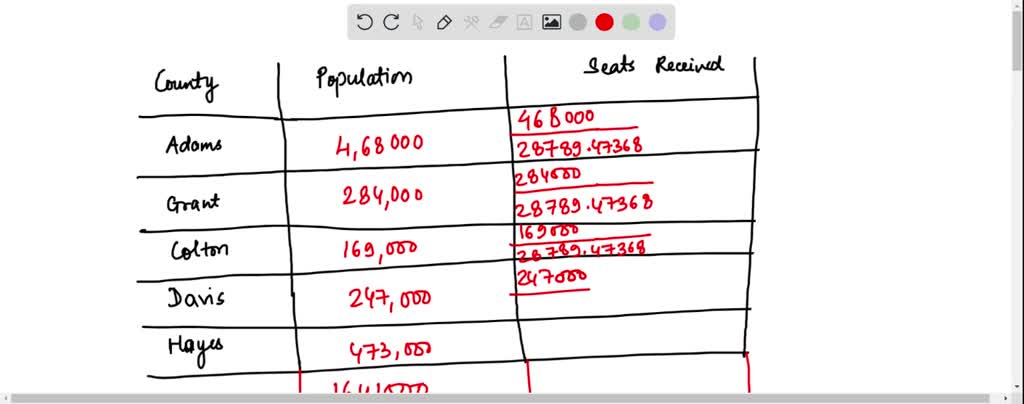 County Population Seats Received
Adams 4,68000 468000
28789.47368
Grant 284,000 284000
28789.47368
Colton 169,000 169000
28789.47368
Davis 247,000 247000
Hayes 473,000
1641000